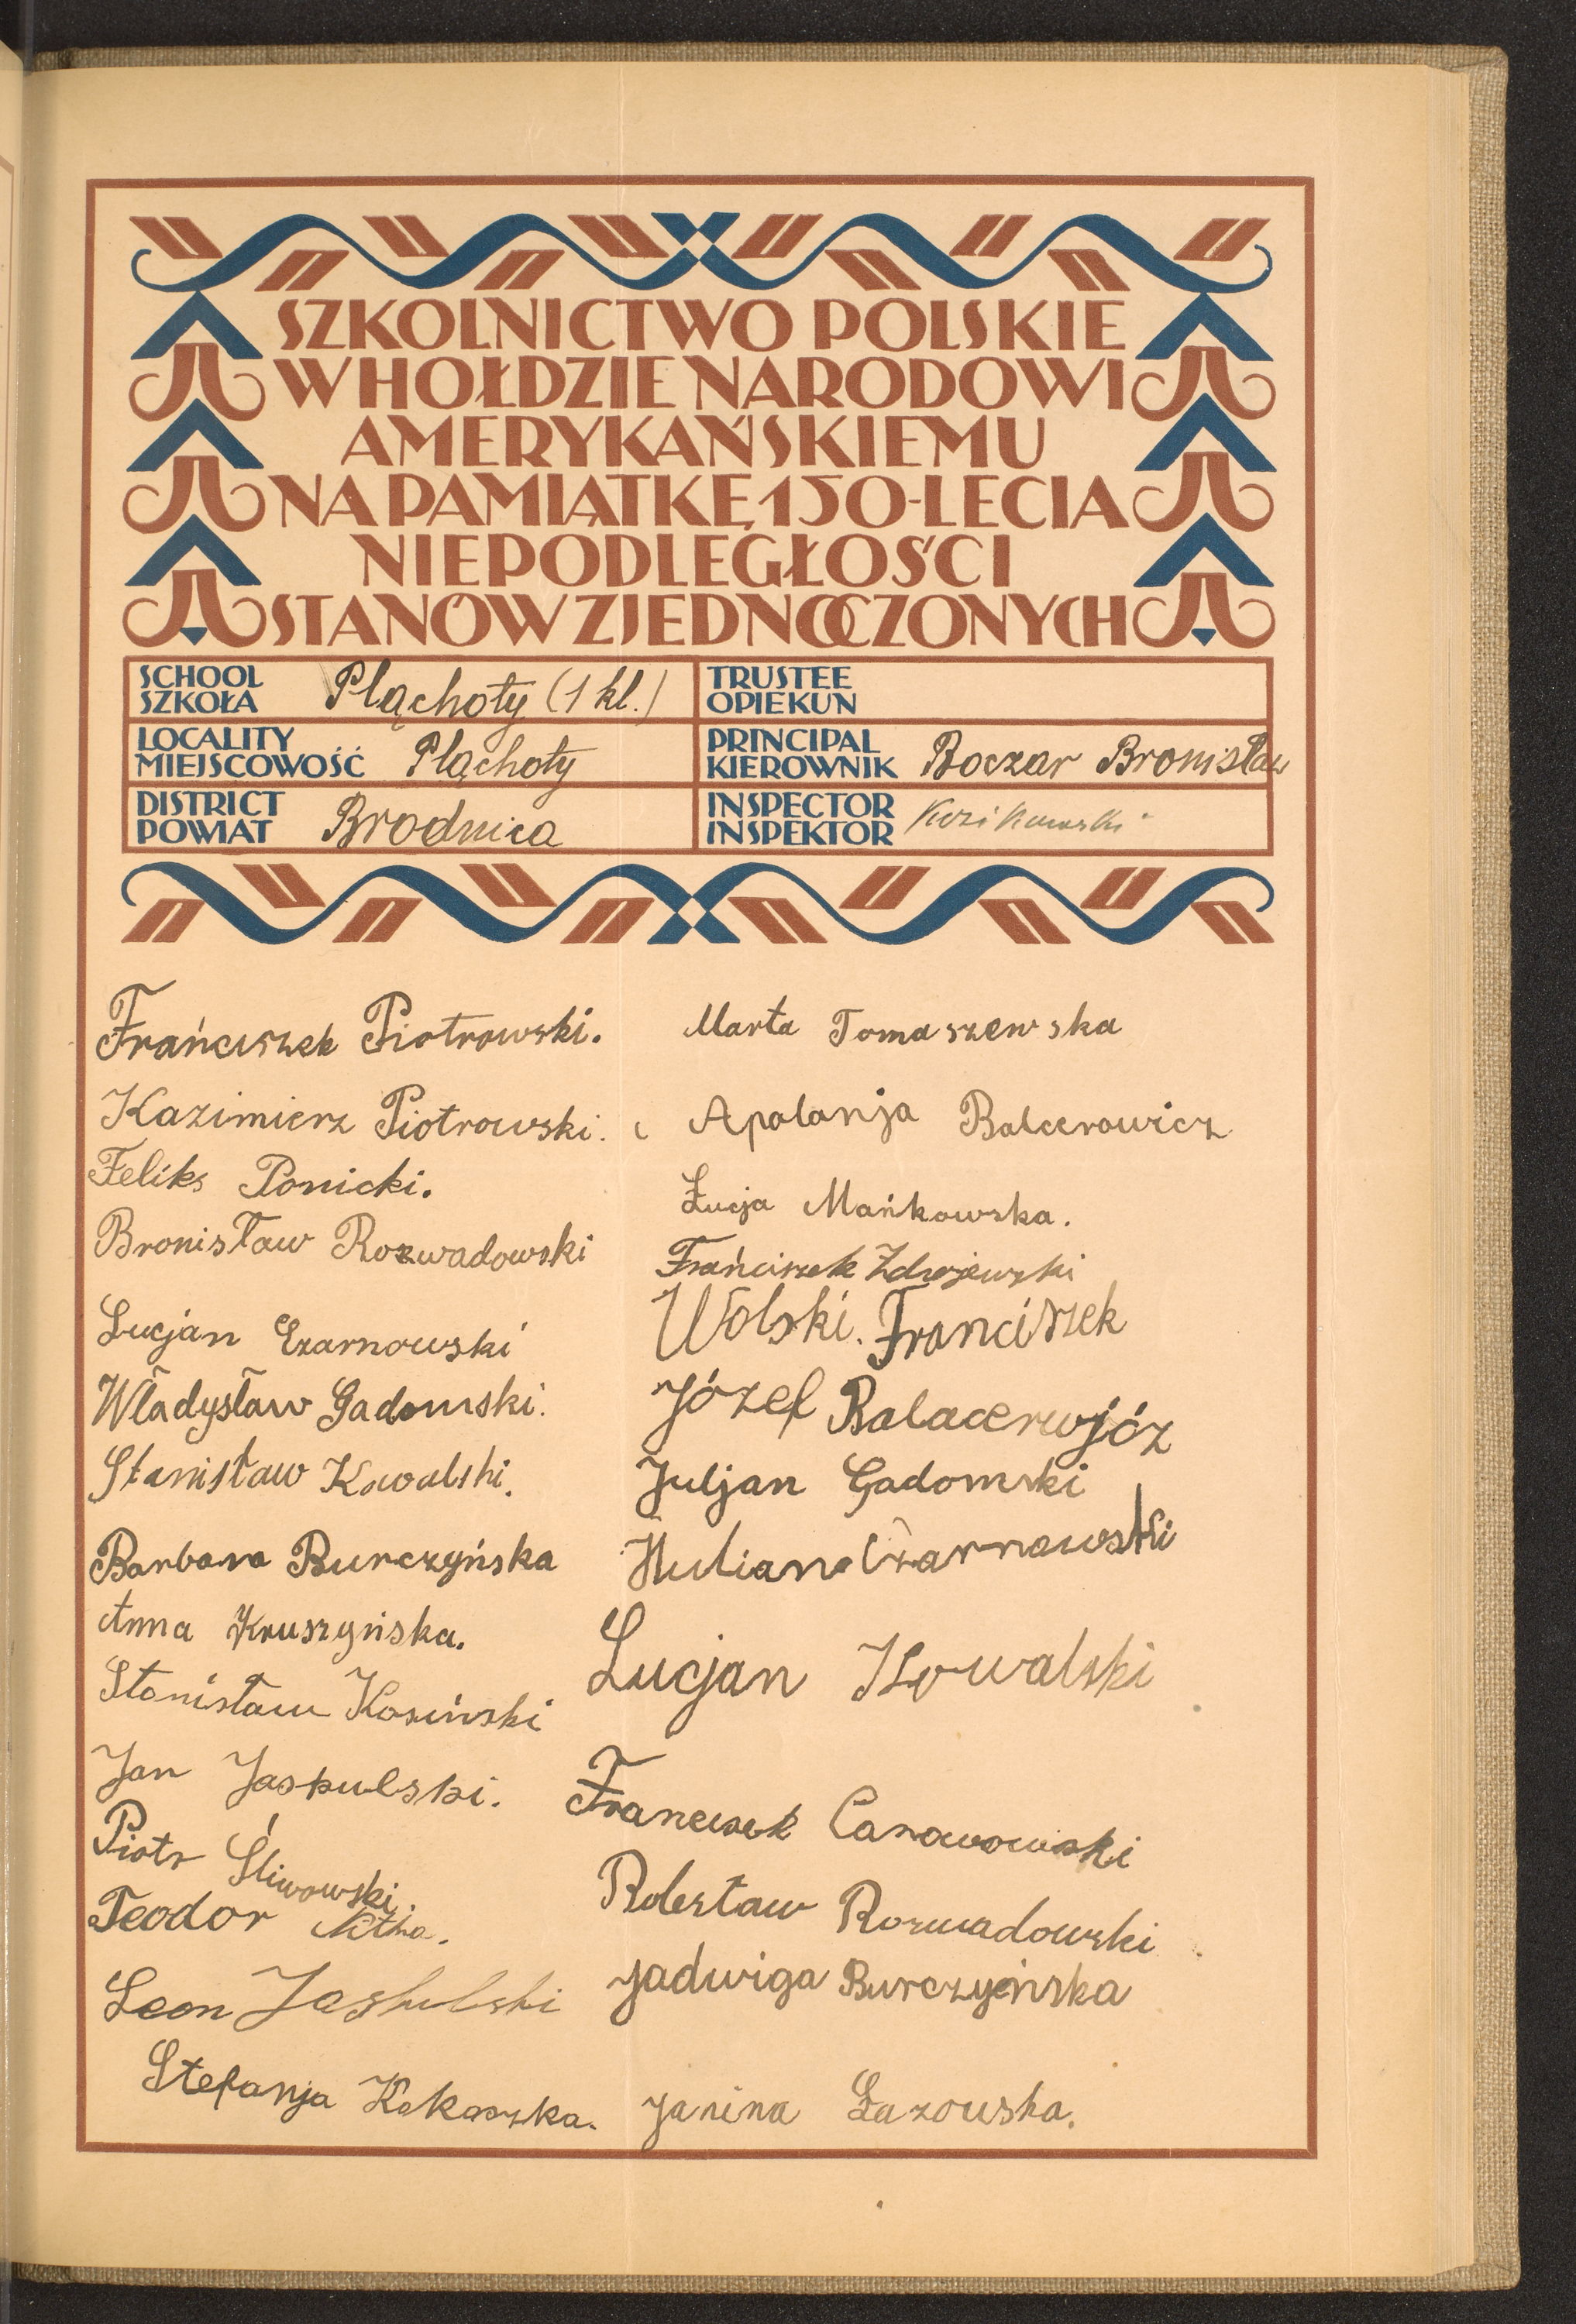 SZKOLNICTWO POLSKIE
W HOŁDZIE NARODOWI
AMERYKAŃSKIEMU
NA PAMIĄTKĘ 150-LECIA
NIEPODLEGŁOŚCI
STANÓW ZJEDNOCZONYCH
SCHOOL
SZKOŁA
Pląchoty (1 kl.)
TRUSTEE
OPIEKUN
LOCALITY
MIEJSCOWOŚĆ
Pląchoty
PRINCIPAL
KIEROWNIK
Boczar Bronisław
DISTRICT
POWIAT
Brodnica
INSPECTOR
INSPEKTOR
Frańciszek Piotrowski.
Kazimierz Piotrowski.
Feliks Ponicki.
Bronisław Rozwadowski
Lucjan Czarnowski
Władysław Gadomski.
Stanisław Kowalski.
Barbara Burczyńska
Anna Kruszyńska.
Stanisław Kosiński
Jan Jaskulski.
Piotr Śliwowski.
Teodor
Leon Jaskulski
Stefanja
Marta Tomaszewska
Apolonja Balcerowicz
Łucja Mańkowska.
Frańciszek Zdrojewski
Wolski. Franciszek
Józef
Juljan Gadomski
Czarnowski
Lucjan Kowalski
Franciszek
Bolesław Rozwadowski
Jadwiga Burczyeńska
Janina Łazowska.